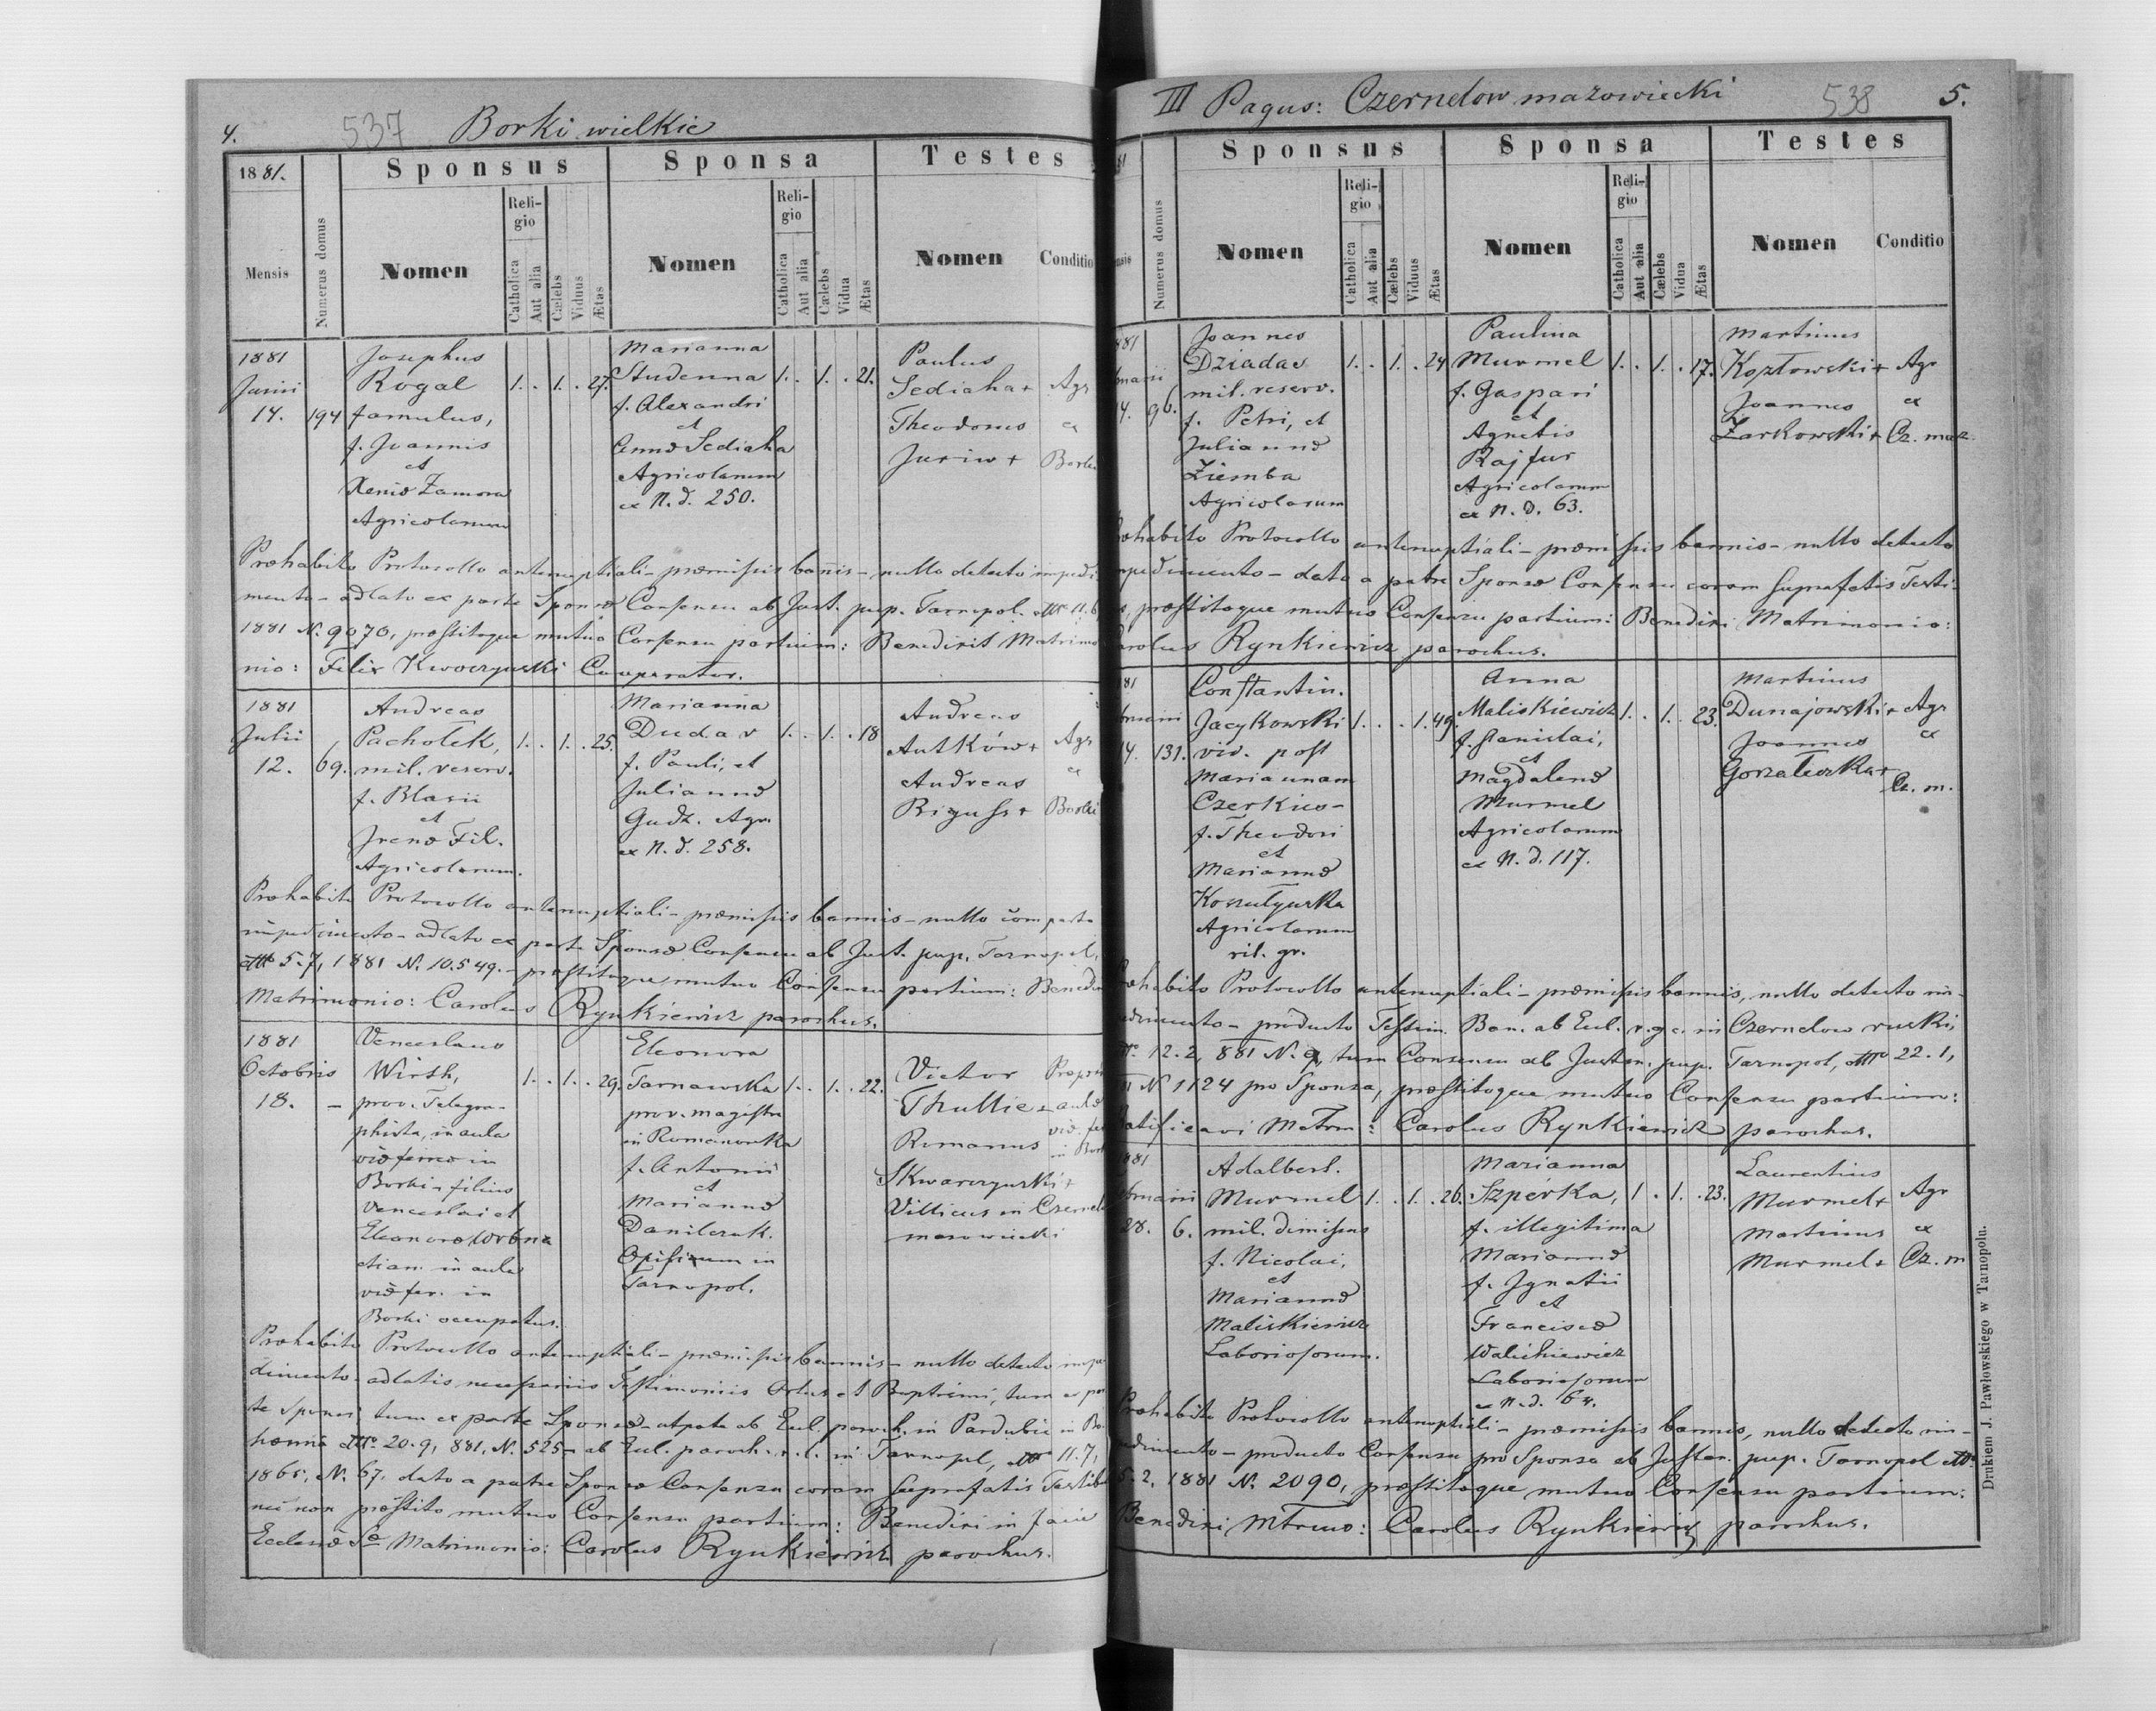 4. 537 Borki wielkie
1881. Sponsus Sponsa Testes
Mensis Numerus domus Nomen Religio Catholica Aut alia Cælebs Viduus Ætas Nomen Religio Catholica Aut alia Cælebs Vidua Ætas Nomen Conditio
1881 Josephus Marianna Paulus
Junii Rogal 1. . 1. . 27. Studenna 1. . 1. . 21. Sediaha+ Agr
14. 194 famulus, f. Alexandri Theodorus ex
f. Joannis et Juriw+ Borki
et Annæ Sediaha
Xeniæ Zamora Agricolarum
Agricolarum ex N. d. 250.
Præhabito Protocollo antenuptiali – præmissis bannis – nullo detecto impedi-
mento – adlato ex parte Sponsæ Consensu ab Just. pup. Tarnopol. dtto 11.6
1881 N. 9070, præstitoque mutuo Consensu partium: Benedixit Matrimo-
nio: Felix Kwoczyński Cooperator.
1881 Andreas Marianna Andreas
Julii Pachotek, 1. . 1. . 25. Dudar 1. . 1. . 18 Autków+ Agr
12. 69. mil. reserv. f. Pauli, et Andreas ex
f. Blasii Juliannæ Riguss+ Borki
et Gudz. Agr.
Irenæ Fil. ex N. d. 258.
Agricolarum.
Præhabito Protocollo antenuptiali – præmissis bannis – nullo comperto
impedimento – adlato ex parte Sponsæ Consensu ab Just. pup. Tarnopol,
dtto 5.7, 1881 N. 10.549. – præstitoque mutuo Consensu partium: Benedixi
Matrimonio: Carolus Rynkiewicz parochus.
1881 Venceslaus Eleonora
Octobris Wirth, 1. . 1. . 29. Tarnawska 1. . 1. . 22. Victor
18. – prov. Telegra- prov. magistra Thullie –
phista, in aula in Romanowka Romanus
viæ ferreæ in f. Antonii Skwarczyński+
Borki – filius et Villicus in Czernel
Venceslai et Mariannæ mazowiecki
Eleonoræ Wrbna Danilczuk.
etiam in aula Opificum in
viæ fer. in Tarnopol.
Borki occupatus.
Præhabito Protocollo antenuptiali – præmissis bannis – nullo detecto impe-
dimento – adlatis necessariis Testimoniis Ortus et Baptismi, tum ex par
te Sponsi, tum ex parte Sponsæ – utpote ab Eul. paroch. in Pardubic in Bo-
hœmia dtto 20.9, 881, N. 525 – ab Eul. paroch. r. l. in Tarnopol, dtto 11.7,
1865, N. 67. dato a patre Sponsæ Consensu coram supræfatis Testib
nec non præstito mutuo Consensu partium: Benedixi in facie
Eclesiæ Sæ Matrimonio: Carolus Rynkiewicz parochus.
III Pagus: Czernelow mazowiecki 538 5.
81 Sponsus Sponsa Testes
Numerus domus Nomen Religio Catholica Aut alia Cælebs Viduus Ætas Nomen Religio Catholica Aut alia Cælebs Vidua Ætas Nomen Conditio
881 Joannes Paulina Martinus
Dziadas 1. . 1. . 24 Murmel 1. . 1. . 17. Kozłowski+ Agr
14. 96. mil. reserv. f. Gaspari Joannes ex
f. Petri, et et Żarkowski+ Cz. maz.
Juliannæ Agnetis
Ziemba Rajfur
Agricolarum Agricolarum
ex N. d. 63.
Præhabito Protocollo antenuptiali – præmissis bannis – nullo detecto
impedimento – dato a patre Sponsæ Consensu coram supræfatis Testi-
, præstitoque mutuo Consensu partium: Benedixi Matrimonio:
Carolus Rynkiewicz parochus.
81 Constantin. Anna Martinus
Jacykowski 1. . . 1. 49. Maliskiewicz 1. . 1. . 23. Dunajowski+ Agr
14. 131. vid. post f. Stanislai, Joannes ex
Mariannam et Gorzaleczka+ Cz. m.
Czerkies – Magdalenæ
f. Theodori Murmel
et Agricolarum
Mariannæ ex N. d. 117.
Koszutyurka
Agricolarum
rit. gr.
Præhabito Protocollo antenuptiali – præmissis bannis, nullo detecto im-
pedimento – producto Testim. Ban. ab Eul. r. g. c. in Czernelow ruski,
dtto 12.2, 881 N. 9, tum Consensu ab Justan. pup. Tarnopol, dtto 22.1,
81 N 1124 pro Sponsa, præstitoque mutuo Consensu partium:
Ratificavi Matrm: Carolus Rynkiewicz parochus.
881 Adalbert. Marianna Laurentius
Murmel 1. . 1. . 26. Szpérka, 1 . 1. . 23. Murmel+ Agr
28. 6. mil. dimissus f. illegitima Martinus ex
f. Nicolai, Mariannæ Murmel+ Cz. m
et f. Ignatii
Mariannæ et
Maliskiewicz Franciscæ
Laboriosorum. Walichiewicz
Laboriosorum
ex n. d. 64.
Præhabito Protocollo antenuptiali – præmissis bannis, nullo detecto im-
pedimento – producto Consensu pro Sponsa ab Justan. pup. Tarnopol dtto
5.2, 1881 N. 2090, præstitoque mutuo Consensu partium:
Benedixi Mtrmo: Carolus Rynkiewicz parochus.
Drukiem J. Pawłowskiego w Tarnopolu.